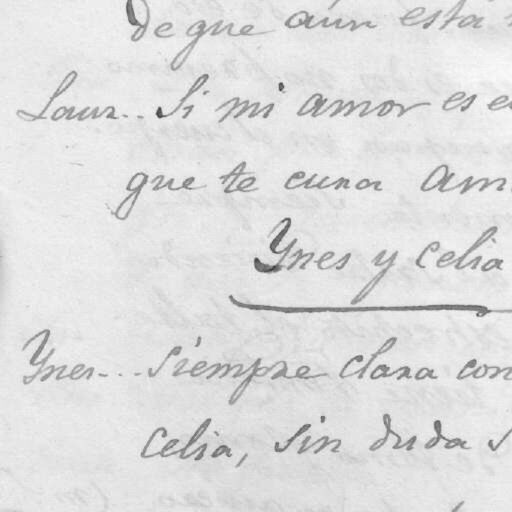 de que aún está
Laur.. Si mi amor es
que te cura am
Ynes y Celia
Ynes... Siempre clara con
Celia, sin duda s